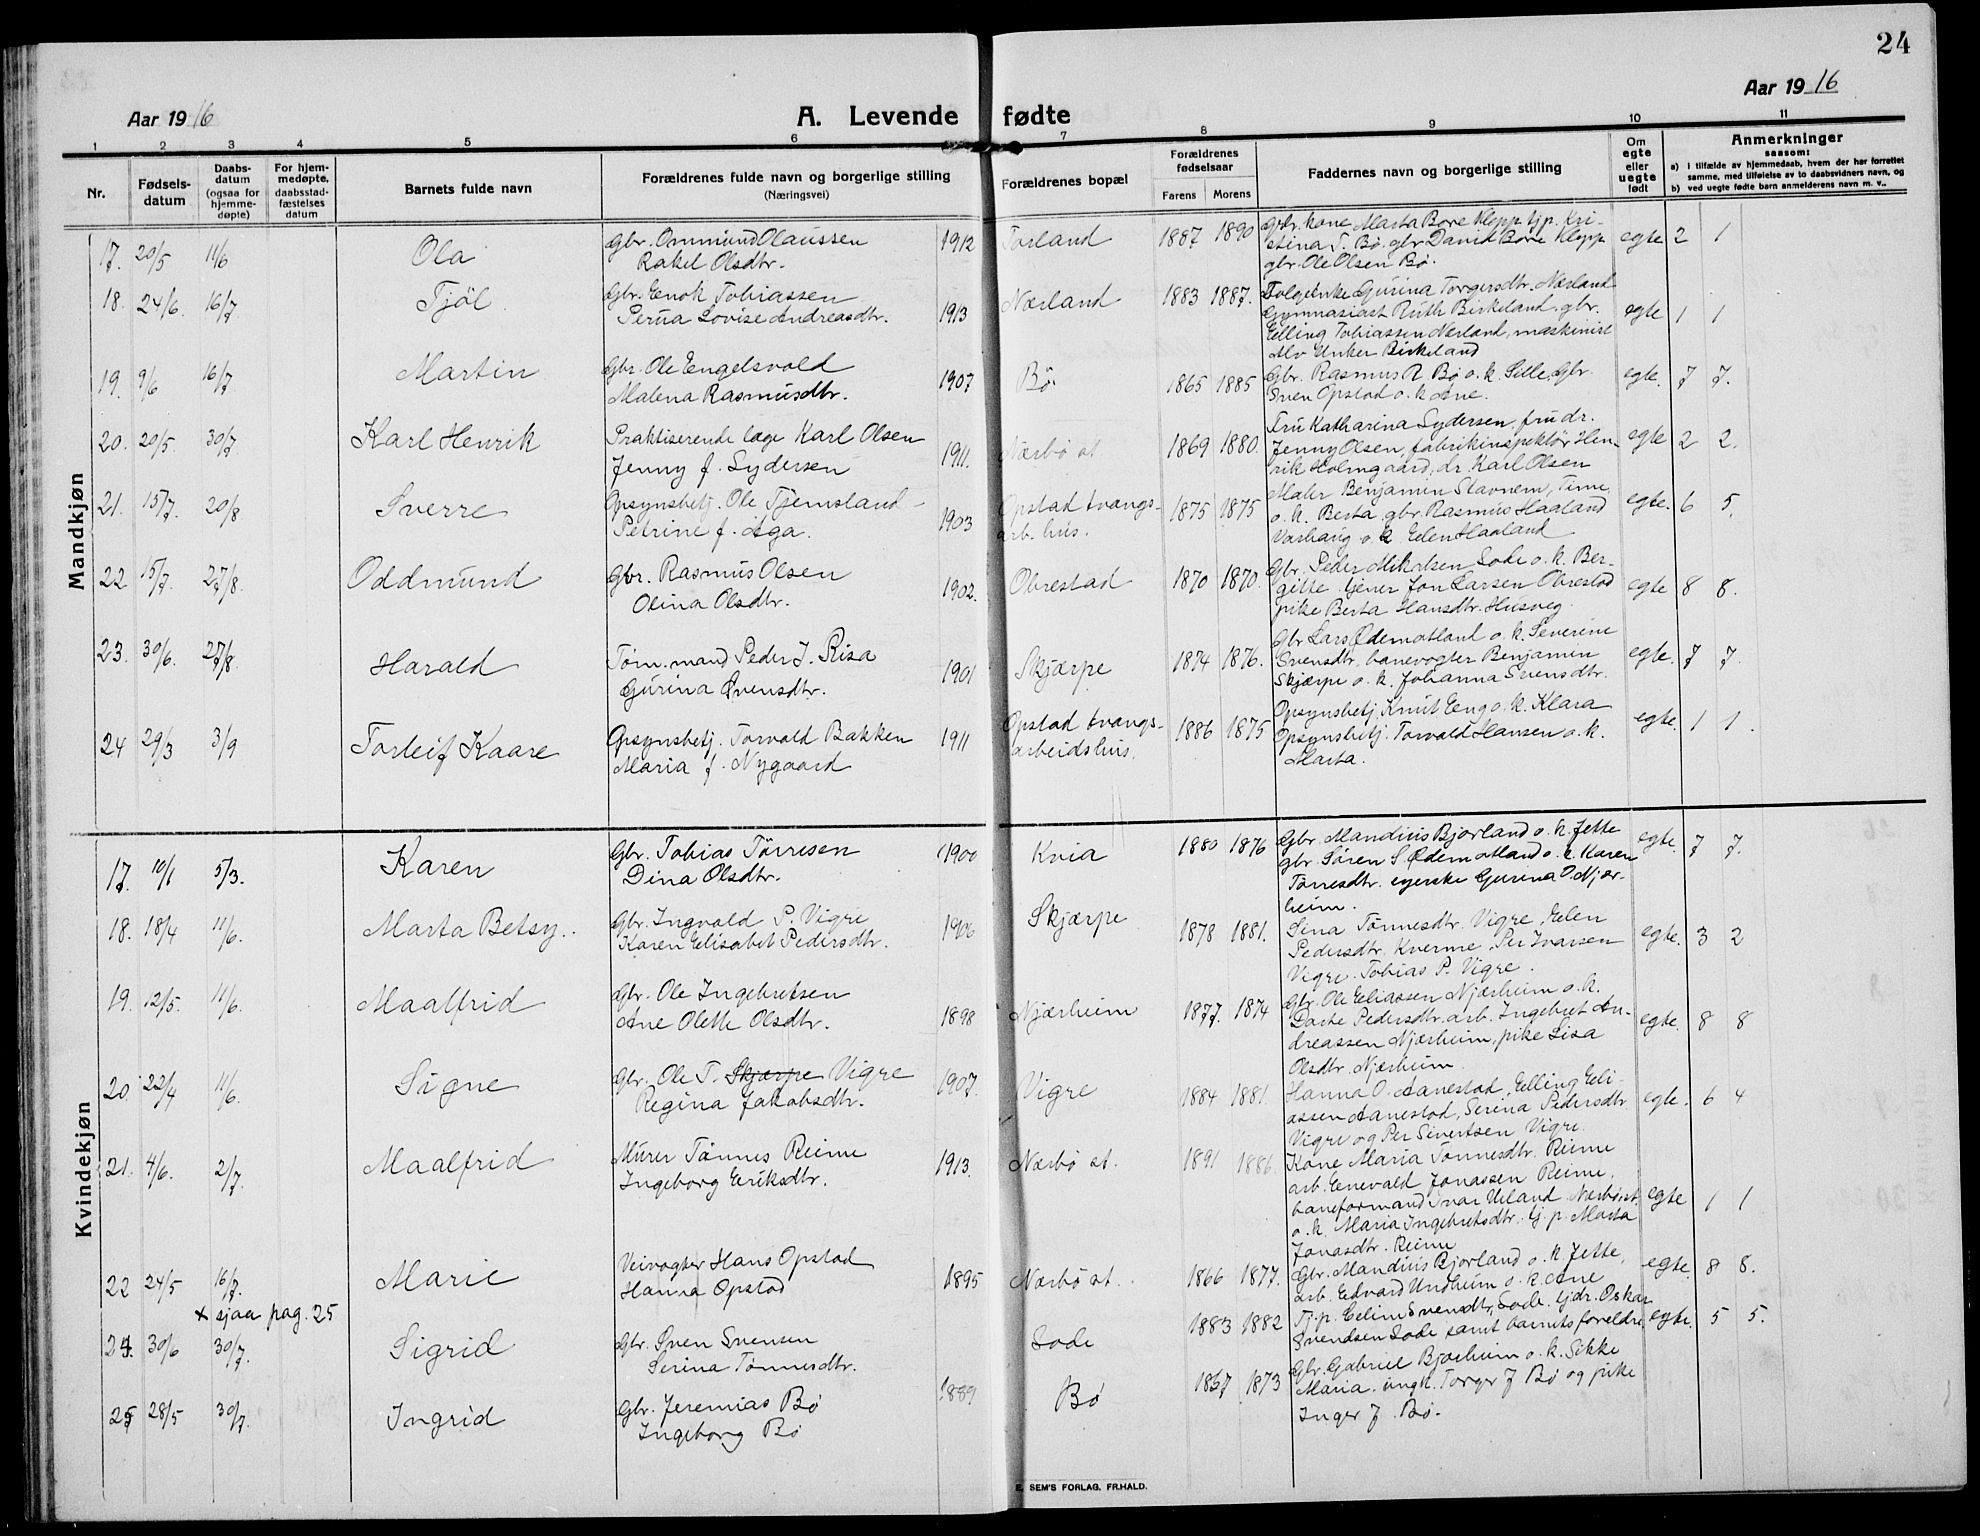 24
Aar 1916
A. Levende fødte
Aar 1916
1 2 3 4 5 6 7 8 9 10 11
Nr.
Fødsels-
datum
Daabs-
datum
(ogsaa for
hjemme-
døpte)
For hjem-
medøpte,
daabsstad-
fæstelses
datum
Barnets fulde navn
Forældrenes fulde navn og borgerlige stilling
(Næringsvei)
Forældrenes bopæl
Forældrenes
fødselsaar
Farens Morens
Faddernes navn og borgerlige stilling
Om
egte
eller
uegte
født
Anmerkninger
saasom:
a) i tilfælde av hjemmedaab, hvem der har forrettet
samme, med tilføielse av to daabsvidners navn, og
b) ved uegte fødte barn anmelderens navn m. v..
Mandkjøn
17. 20/5 11/6 Ola
Gbr. Ommund Olaussen
Rakel Olsdtr.
1912 Torland 1887 1890
Gbr. kone Marta Bore Klepp tjp. Kri-
stina T. Bø. gbr David Bore Klepp
gbr. Ole Olsen Bø.
egte 2 1
18. 24/6. 16/7. Tjöl
Gbr. Enok Tobiassen
Perua Lovise Andreasdtr.
1913 Nærland 1883 1887.
Folgeenke Gurina Torgersdtr. Nærland
Gymnasiast Ruth Birkeland, gbr.
Elling Tobiassen Nærland, maskinist
Alv Unker Birkeland
egte 1 1
19. 9/6 16/7. Martin
Gbr. Ole Engelsvold
Malena Rasmusdtr.
1907 Bø. 1865 1885
Gbr. Rasmus R. Bø o. k. Sille, Gbr.
Sven Opstad o. k. Ane.
egte. 7 7.
20. 20/5. 30/7. Karl Henrik
Praktiserende læge Karl Olsen
Jenny f. Sydersen
1911. Nærbø st. 1869 1880.
Fru Katharina Sydersen, fru dr.
Jenny Olsen, fabrikinspektør Hen-
rik Holmgaard, dr. Karl Olsen
egte 2 2.
21. 15/7. 20/8 Sverre
Opsynsbetj. Ole Tjemsland
Petrine f. Aga.
1903 Opstad tvangs-
arb. hus. 1875 1875
Maler Benjamin Stavnem, Time
o. k. Berta, gbr. Rasmus Haaland
Varhaug o. k. Elen Haaland
egte. 6 5.
22 15/7. 27/8. Oddmund
Gbr. Rasmus Olsen
Olina Olsdtr.
1902. Obrestad 1870 1870.
Gbr. Peder Mikalsen Lode o. k. Ber-
gitte. tjener Jon Larsen Obrestad
pike Berta Hansdtr. Husveg.
egte 8 8.
23. 30/6. 27/8. Harald
Tøm. mand Peder J. Risa
Gurina Svensdtr.
1901 Skjærpe 1874 1876.
Gbr Lars Ødemotland o. k. Severine
Svensdtr, banevogter Benjamin
Skjærpe o. k. Johanna Svensdtr.
egte. 7 7.
24 29/3 3/9 Torleif Kaare
Opsynsbetj. Torvald Bakken
Maria f. Nygaard
1911 Opstad tvangs-
arbeidshus. 1886 1875
Opsynsbetj. Knut Eeng o. k. Klara
Opsynsbetj. Torvald Hansen o. k.
Marta.
egte. 1 1.
Kvindekjøn
17. 10/1 5/3. Karen
Gbr. Tobias Tørresen
Dina Olsdtr.
1900 Kvia 1880 1876
Gbr. Mandius Bjorland o. k. Jette
gbr. Søren S. Ødemotland o. k. Karen
Tønesdtr. egerske Gurina O. Njær-
heim.
egte. 7 7.
18. 18/4 11/6. Marta Betsy.
Gbr. Ingvald P. Vigre
Karen Elisabet Pedersdtr.
1906 Skjærpe 1878 1881.
Sina Tønnesdtr. Vigre, Elen
Pedersdtr. Kverme, Per Ivarsen
Vigre. Tobias P. Vigre.
egte. 3 2
19. 12/5. 11/6. Maalfrid
Gbr. Ole Ingebretsen
Ane Olette Olsdtr.
1898 Njærheim 1877. 1874
Gbr. Ole Eliassen Njærheim o. k.
Dorte Pedersdtr. arb. Ingebret An-
dreassen Njærheim, pike Lisa
Olsdtr. Njærheim.
egte. 8 8
20. 22/4 11/6. Signe
Gbr. Ole T. Skjærpe Vigre
Regina Jakobsdtr.
1907. Vigre 1884 1881.
Hanna O. Aanestad, Elling Eeli-
assen Aanestad, Serina Pedersdtr
Vigre og Per Sivertsen Vigre.
egte. 6 4
21. 4/6. 2/7. Maalfrid
Murer Tønnes Reime
Ingeborg Eriksdtr.
1913. Nærbø st. 1891 1886.
Kone Maria Tønnesdtr. Reime
arb. Enevald Jonassen Reime,
baneformand Ivar Ueland Nærbø st.
o. k. Maria Ingebretsdtr. tj. p. Marta
Jonasdtr. Reime
egte 1 1
22 24/5 16/7. Marie
Veivogter Hans Opstad
Hanna Opstad
1895 Nærbø st. 1866 1877.
Gbr. Mandius Bjorland o. k. Jette,
arb. Edvard Undheim o. k. Ane
egte. 8 8.
x sjaa pag. 25
24. 30/6 30/7. Sigrid
Gbr. Sven Svensen
Serina Tønnesdtr.
Lode 1883 1882
Tj. p. Eeline Svensdtr, Lode. tj dr. Oskar
Svendsen Lode samt barnets foreldre
egte. 5 5.
25 28/5 30/7. Ingrid
Gbr. Jeremias Bø
Ingeborg Bø
1889 Bø 1867 1873
Gbr. Gabriel Bjorheim o. k. Sikke
Maria. ungk. Torger J Bø og pike
Inger J. Bø.
E. SEM'S FORLAG. FR.HALD.